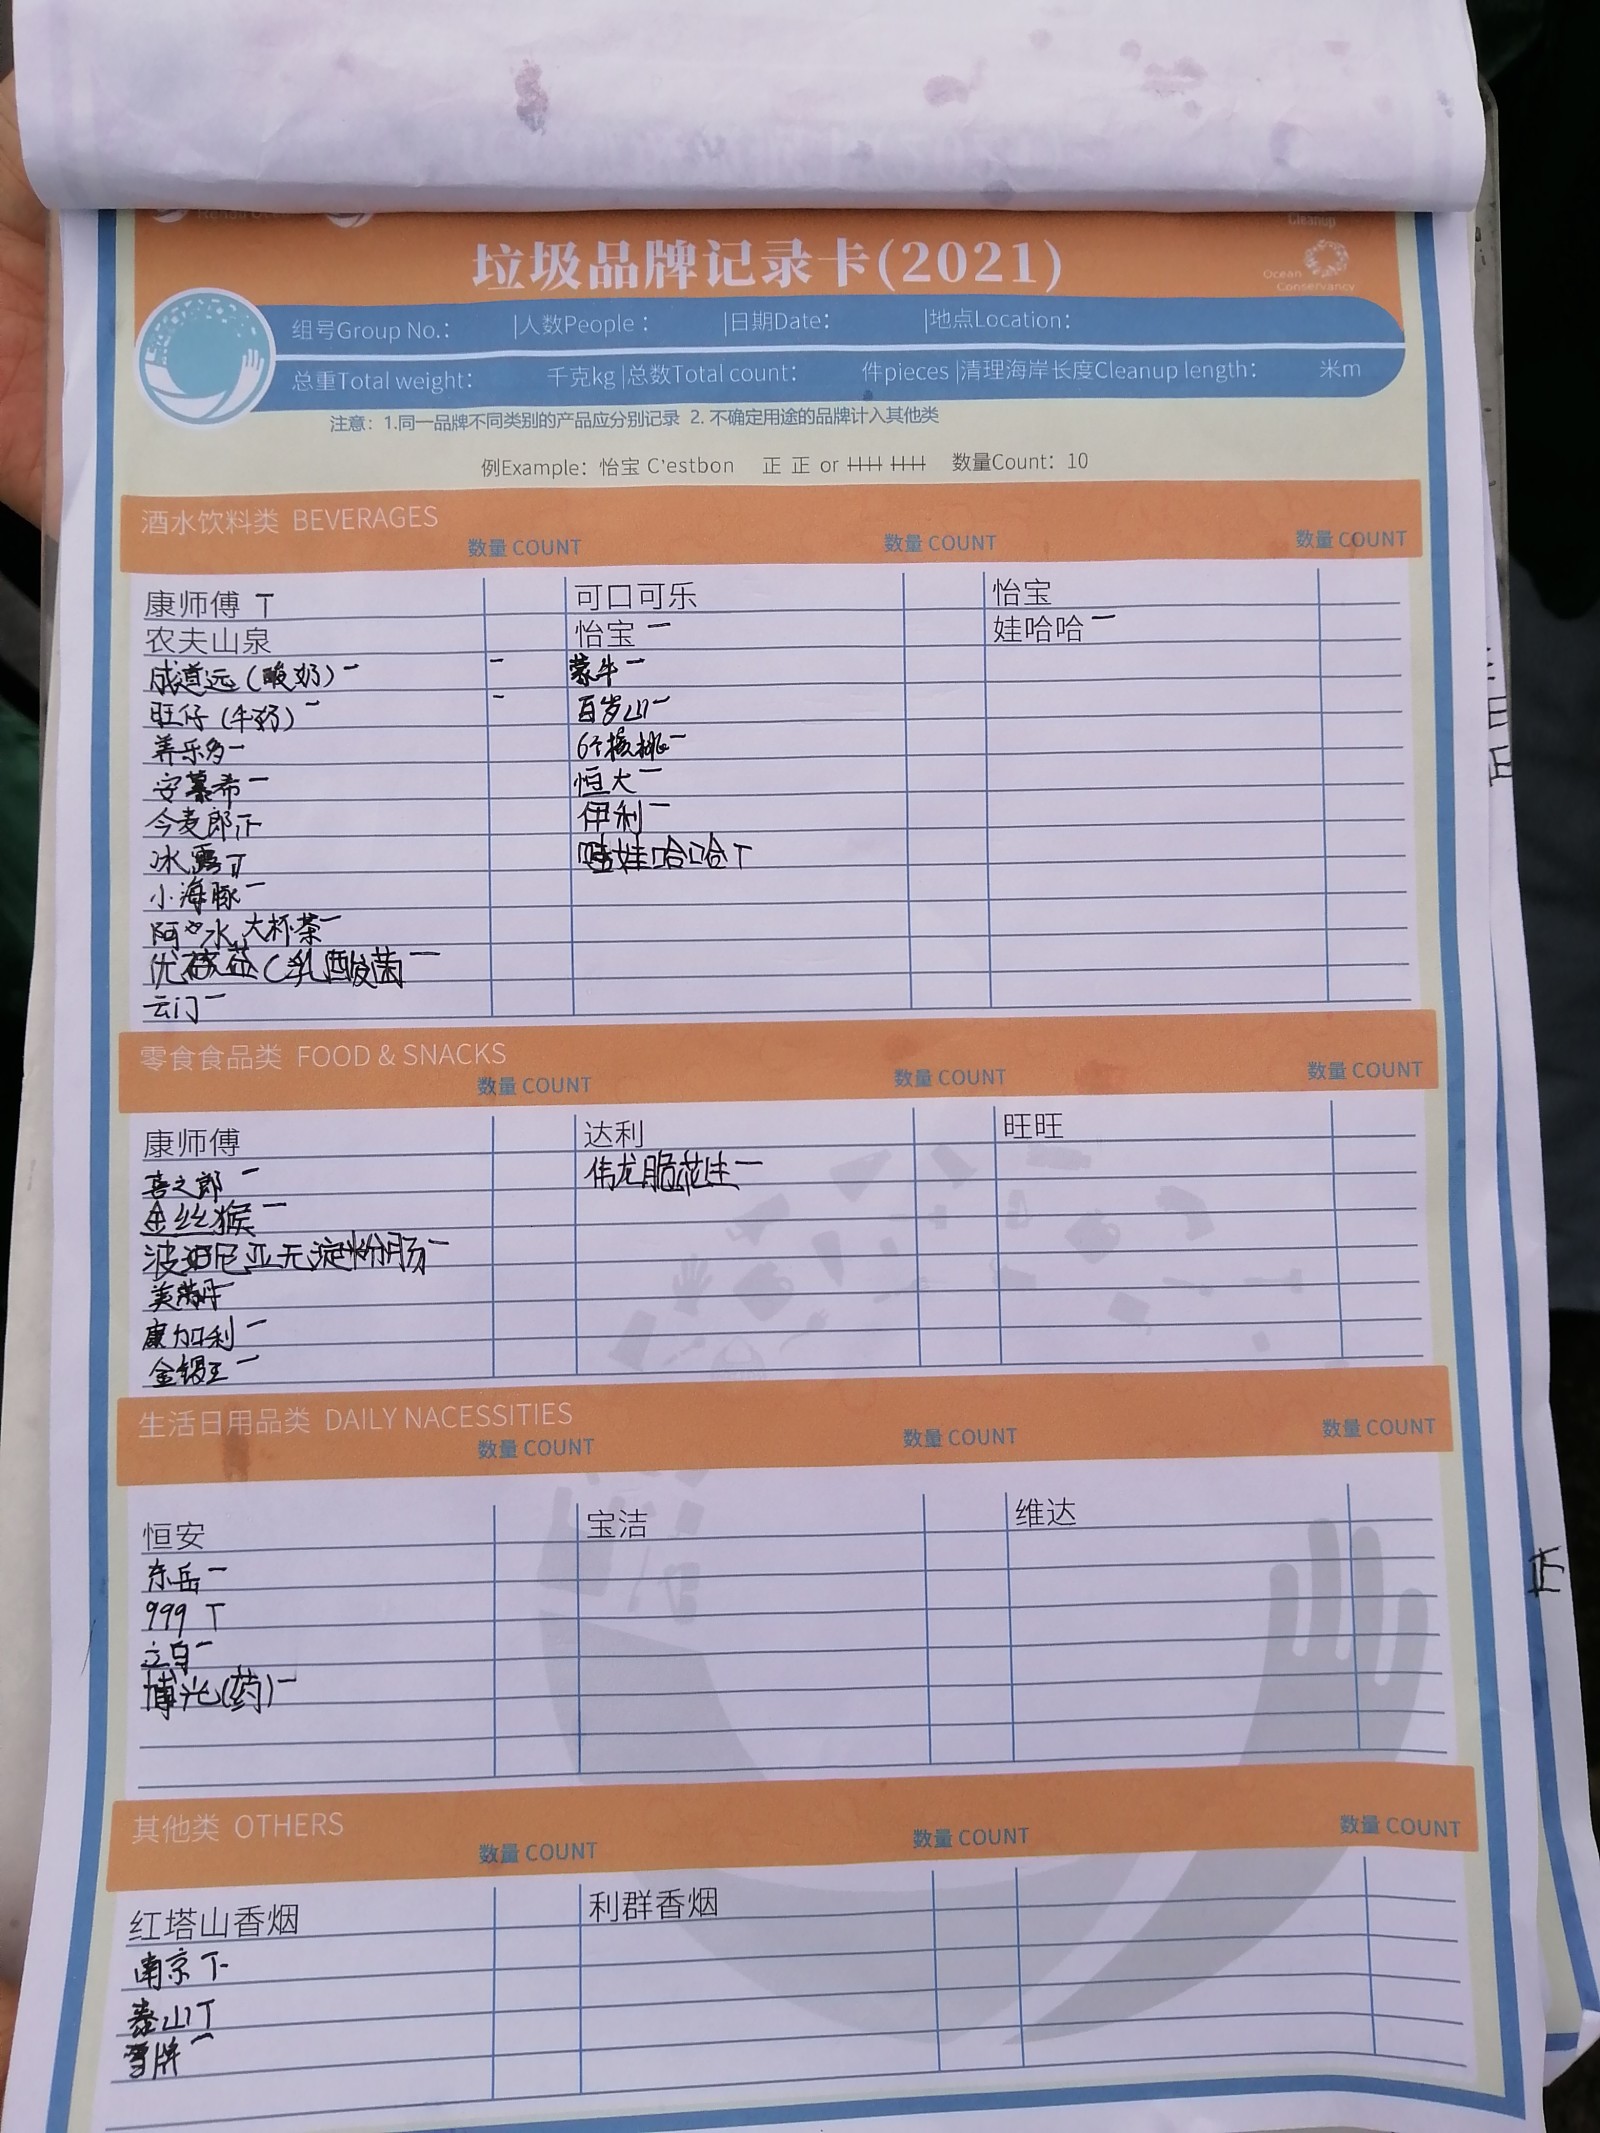 Cleanup
Ocean Conservancy
垃圾品牌记录卡(2021)
组号Group No.: |人数People: |日期Date: |地点Location:
总重Total weight: 千克kg |总数Total count: 件pieces |清理海岸长度Cleanup length: 米m
注意：1.同一品牌不同类别的产品应分别记录 2. 不确定用途的品牌计入其他类
例Example：怡宝 C'estbon 正 正 or 卌 卌 数量Count：10
酒水饮料类 BEVERAGES
数量 COUNT 数量 COUNT 数量 COUNT
康师傅 T 可口可乐 怡宝
农夫山泉 怡宝 一 娃哈哈 一
成道远(酸奶) 一 一 蒙牛 一
旺仔(牛奶) 一 一 百岁山 一
养乐多 一 6个核桃 一
安慕希 一 恒大 一
今麦郎 下 伊利 一
冰露 娃哈哈 T
小海豚 一
水 大杯茶 一
优益C乳酸菌 一
云门 一
零食食品类 FOOD & SNACKS
数量 COUNT 数量 COUNT 数量 COUNT
康师傅 达利 旺旺
喜之郎 一 伟龙脆花生 一
金丝猴 一
波尼亚无淀粉肠 一
美
康加利 一
金锣王 一
生活日用品类 DAILY NACESSITIES
数量 COUNT 数量 COUNT 数量 COUNT
恒安 宝洁 维达
东岳 一
999 T
立白 一
博光(药) 一
其他类 OTHERS
数量 COUNT 数量 COUNT 数量 COUNT
红塔山香烟 利群香烟
南京 下
泰山 T
牌 一
正